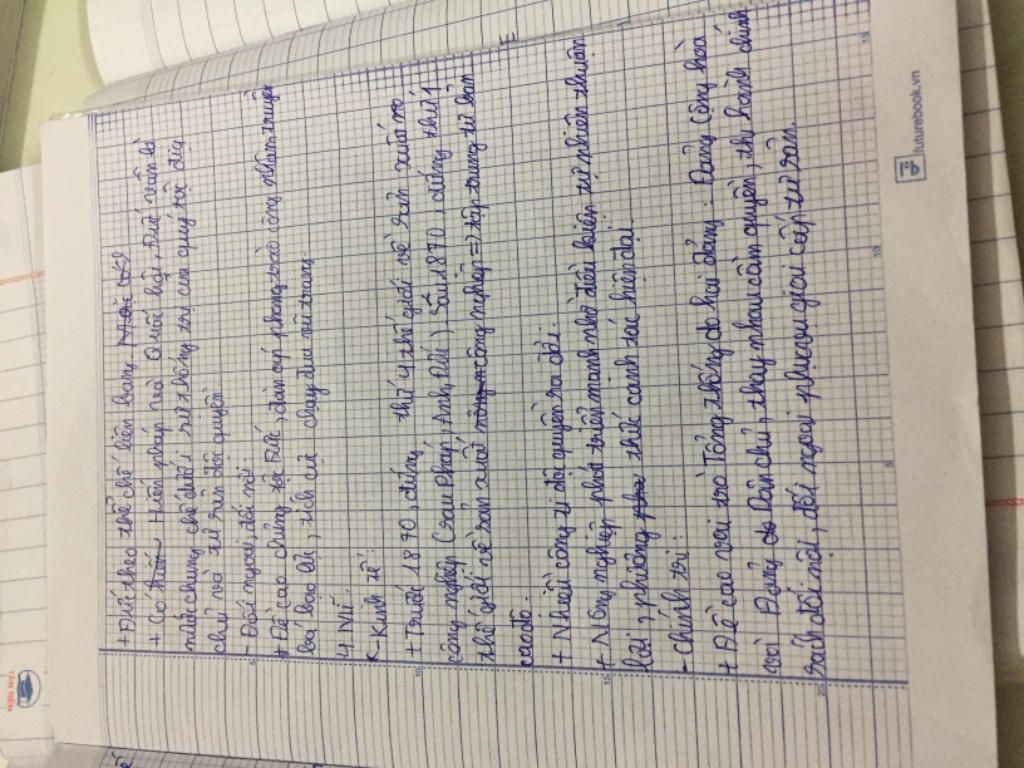 + Đức theo thể chế liên bang.
+ Có Hiến pháp và Quốc hội, Đức vẫn là
nước chuyên chế dưới sự thống trị của quý tộc địa
chủ và tư sản độc quyền.
- Đối ngoại, đối nội:
+ Đề cao chủng tộc Đức, đàn áp phong trào công nhân, truyền
bá bạo lực, tích cực chạy đua vũ trang.
4. Mĩ.
* Kinh tế:
+ Trước 1870, đứng thứ 4 thế giới về sản xuất
công nghiệp (sau Pháp, Anh, Đức). Sau 1870, đứng thứ 1
thế giới về sản xuất công nghiệp => tập trung tư bản
cao độ.
+ Nhiều công ti độc quyền ra đời.
+ Nông nghiệp phát triển mạnh nhờ điều kiện tự nhiên thuận
lợi, phương thức canh tác hiện đại.
- Chính trị:
+ Đề cao vai trò Tổng thống do hai đảng: Đảng Cộng hòa
và Đảng Dân chủ, thay nhau cầm quyền, thi hành chính
sách đối nội, đối ngoại phục vụ giai cấp tư sản.
5
10
15
20
5
10
15
futurebook.vn
TÂN TIẾN